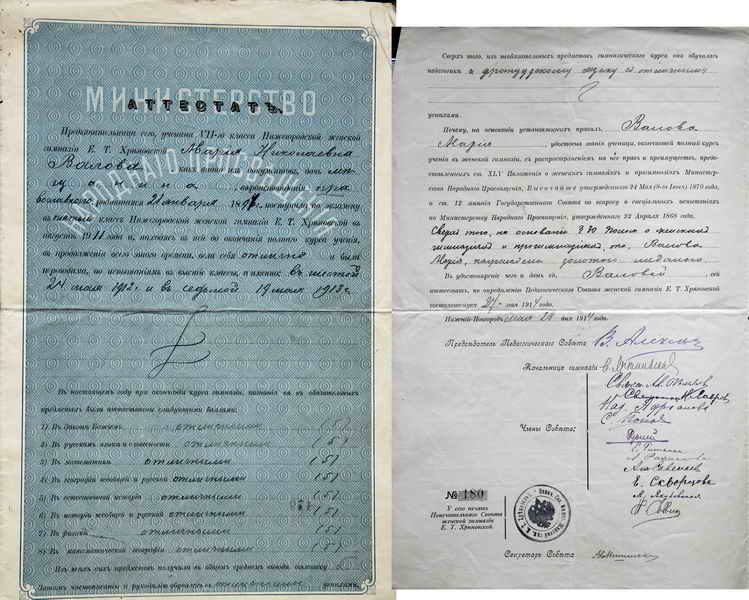 МИНИСТЕРСТВО
НАРОДНАГО ПРОСВѢЩЕНІЯ
АТТЕСТАТЪ.
Предъявительница сего, ученица VII-го класса Нижегородской женской
гимназіи Е. Т. Хрѣновской Марія Николаевна
Валова, какъ видно изъ документовъ, дочь
мѣщанина, вѣроисповѣданія право
славнаго, родившаяся 21 января 18, поступила по экзамену
въ шестой классъ Нижегородской женской гимназіи Е. Т. Хрѣновской въ
августѣ 1911 года и, находясь въ ней до окончанія полнаго курса ученія,
въ продолженіе всего этого времени, вела себя отлично и была
переводима, по испытаніямъ въ высшіе классы, а именно: въ шестой
24 мая 1912 г. и въ седьмой 19 мая 1913 г.
Въ настоящемъ году при окончаніи курса гимназіи, познанія ея въ обязательныхъ
предметахъ были аттестованы слѣдующими баллами:
1) Въ Законѣ Божіемъ отличными (5)
2) Въ русскомъ языкѣ и словесности отличными (5)
3) Въ математикѣ отличными (5)
4) Въ географіи всеобщей и русской отличными (5)
5) Въ естественной исторіи отличными (5)
6) Въ исторіи всеобщей и русской отличными (5)
7) Въ физикѣ отличными (5)
8) Въ математической географіи отличными (5)
Изъ всѣхъ сихъ предметовъ получила въ общемъ среднемъ выводѣ отмѣтку 5
Затѣмъ чистописанію и рукодѣлію обучалась съ отличными успѣхами.
Сверхъ того, изъ необязательныхъ предметовъ гимназическаго курса она обучалась
и французскому языку съ отличными
успѣхами.
Почему, на основаніи установленныхъ правилъ, Валова
Марія, удостоена званія ученицы, окончившей полный курсъ
ученія въ женской гимназіи, съ распространеніемъ на нее правъ и преимуществъ, предо-
ставленныхъ ст. XLV Положенія о женскихъ гимназіяхъ и прогимназіяхъ Министер-
ства Народнаго Просвѣщенія, Высочайше утвержденнаго 24 Мая (9-го Іюня) 1870 года,
и ст. 12 мнѣнія Государственнаго Совѣта по вопросу о спеціальныхъ испытаніяхъ
по Министерству Народнаго Просвѣщенія, утвержденнаго 22 Апрѣля 1868 года.
Сверхъ того, на основаніи § 30 Полож. о женскихъ
гимназіяхъ и прогимназіяхъ, она, Валова
Марія, награждена золотою медалью.
Въ удостовѣреніе чего и данъ ей, Валовой, сей
аттестатъ, по опредѣленію Педагогическаго Совѣта женской гимназіи Е. Т. Хрѣновской
27 мая 1914 года.
Нижній-Новгородъ мая 29 дня 1914 года.
Предсѣдатель Педагогическаго Совѣта
Начальница гимназіи
Члены Совѣта:
Е. Скворцова
№ 180
У сего печать
Попечительнаго Совѣта
женской гимназіи
Е. Т. Хрѣновской.
Секретарь Совѣта